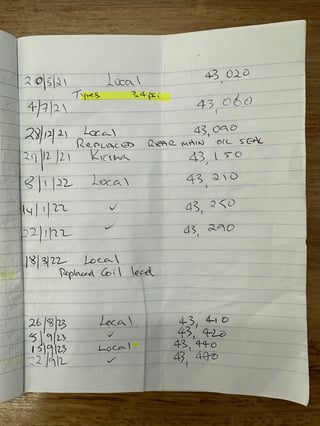 20/5/21 Local 43,020
Tyres 34psi
4/7/21 43,060
28/12/21 Local 43,090
REPLACED REAR MAIN OIL SEAL
29/12/21 43,150
8/1/22 Local 43,210
14/1/22 ✓ 43,250
22/1/22 ✓ 43,290
18/3/22 Local
Replaced Coil lead
26/8/23 Local 43,410
5/9/23 ✓ 43,420
15/9/23 Local 43,440
22/9/2 ✓ 43,470